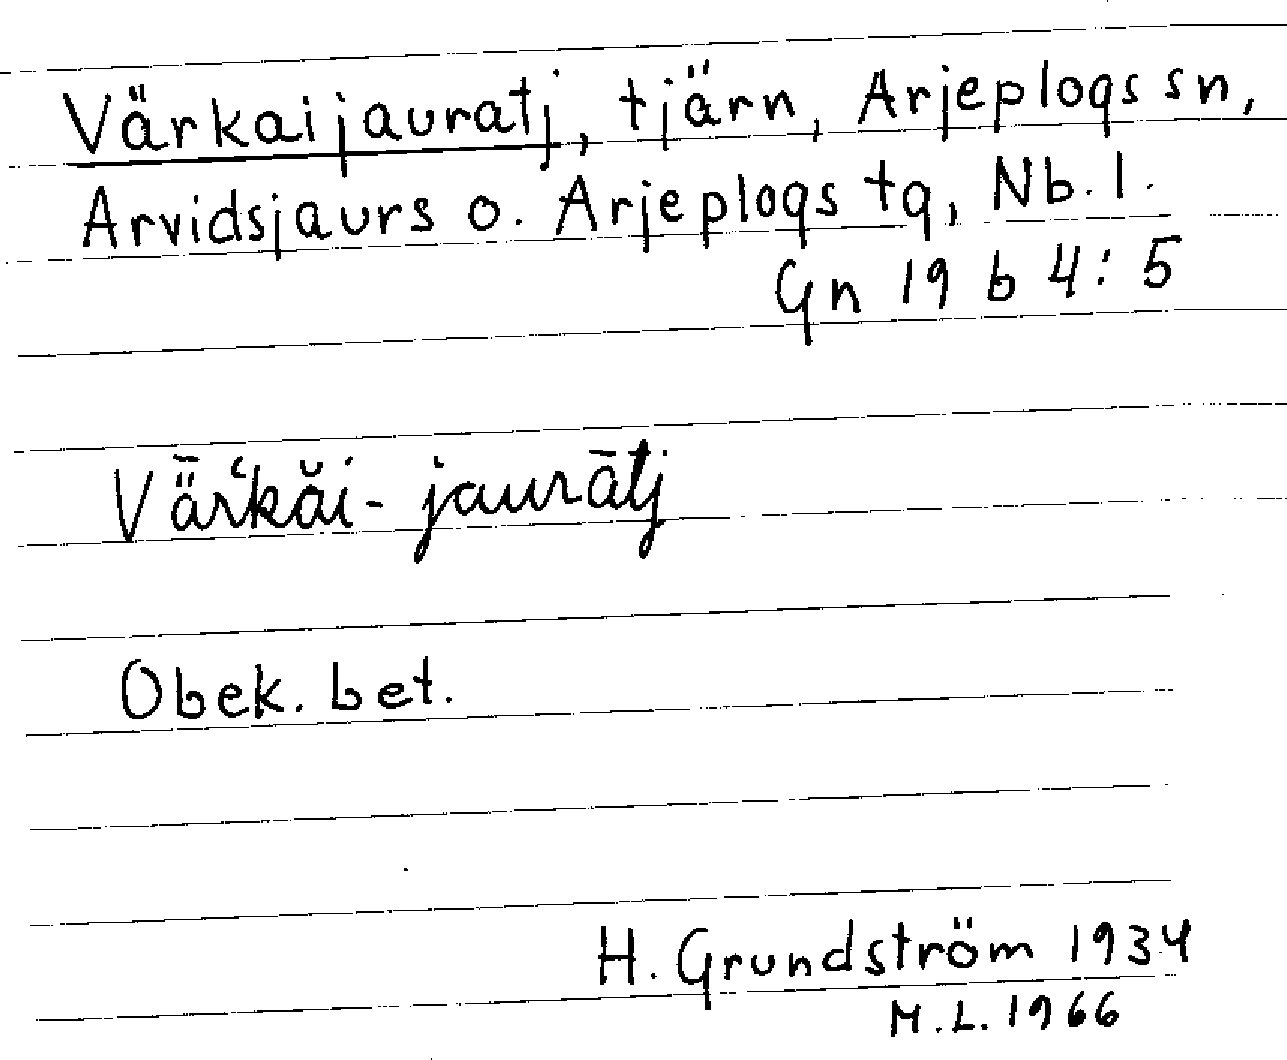 Värkaijauratj, tjärn, Arjeplogs sn,
Arvidsjaurs o. Arjeplogs tg, Nb. l.
Gn 19 b 4:5
Vǟrʻkăi-jaurātj
Obek. bet.
H. Grundström 1934
M.L. 1966